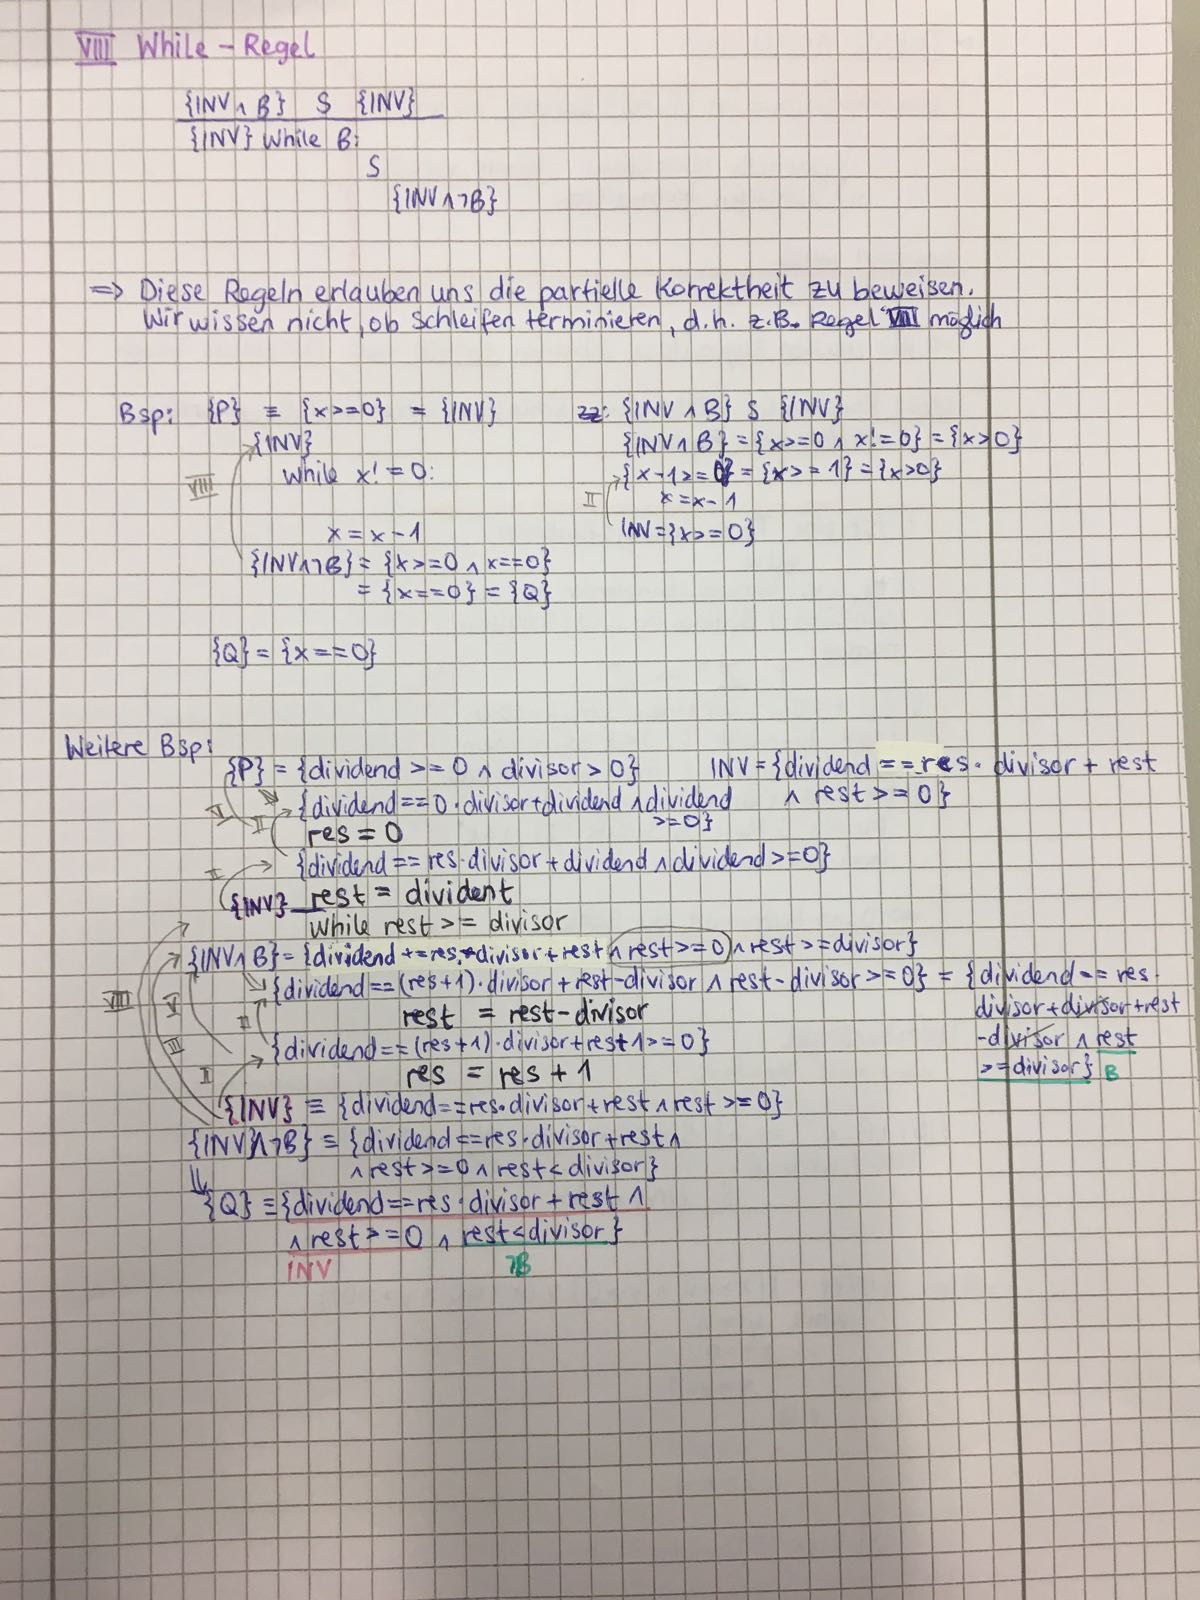 VIII While-Regel
{INV ∧ B} S {INV}
{INV} While B:
S
{INV ∧ ¬B}
=> Diese Regeln erlauben uns die partielle Korrektheit zu beweisen.
Wir wissen nicht, ob Schleifen terminieren, d.h. z.B. Regel VIII möglich
Bsp: {P} ≡ {x>=0} = {INV}
{INV}
while x!=0:
VIII
x = x-1
{INV ∧ ¬B} = {x>=0 ∧ x==0}
= {x==0} = {Q}
{Q} = {x==0}
zz: {INV ∧ B} S {INV}
{INV ∧ B} = {x>=0 ∧ x!=0} = {x>0}
{x-1>=0} = {x>=1} = {x>0}
II x=x-1
INV={x>=0}
Weitere Bsp:
{P} = {dividend >= 0 ∧ divisor > 0} INV = {dividend == res · divisor + rest
∧ rest >= 0}
{dividend==0·divisor+dividend ∧ dividend
>=0}
II res = 0
{dividend == res·divisor + dividend ∧ dividend>=0}
{INV} rest = divident
While rest >= divisor
{INV ∧ B} = {dividend == res·divisor + rest ∧ rest>=0 ∧ rest>=divisor}
VIII V {dividend==(res+1)·divisor + rest-divisor ∧ rest-divisor >=0} = {dividend == res·
II rest = rest-divisor divisor+divisor+rest
III {dividend==(res+1)·divisor+rest1>=0} -divisor ∧ rest
II res = res + 1 >=divisor} B
{INV} ≡ {dividend==res·divisor+rest ∧ rest>=0}
{INV}∧¬B} ≡ {dividend==res·divisor+rest ∧
∧ rest>=0 ∧ rest<divisor}
{Q} ≡ {dividend==res·divisor + rest ∧
∧ rest>=0 ∧ rest<divisor}
INV ¬B